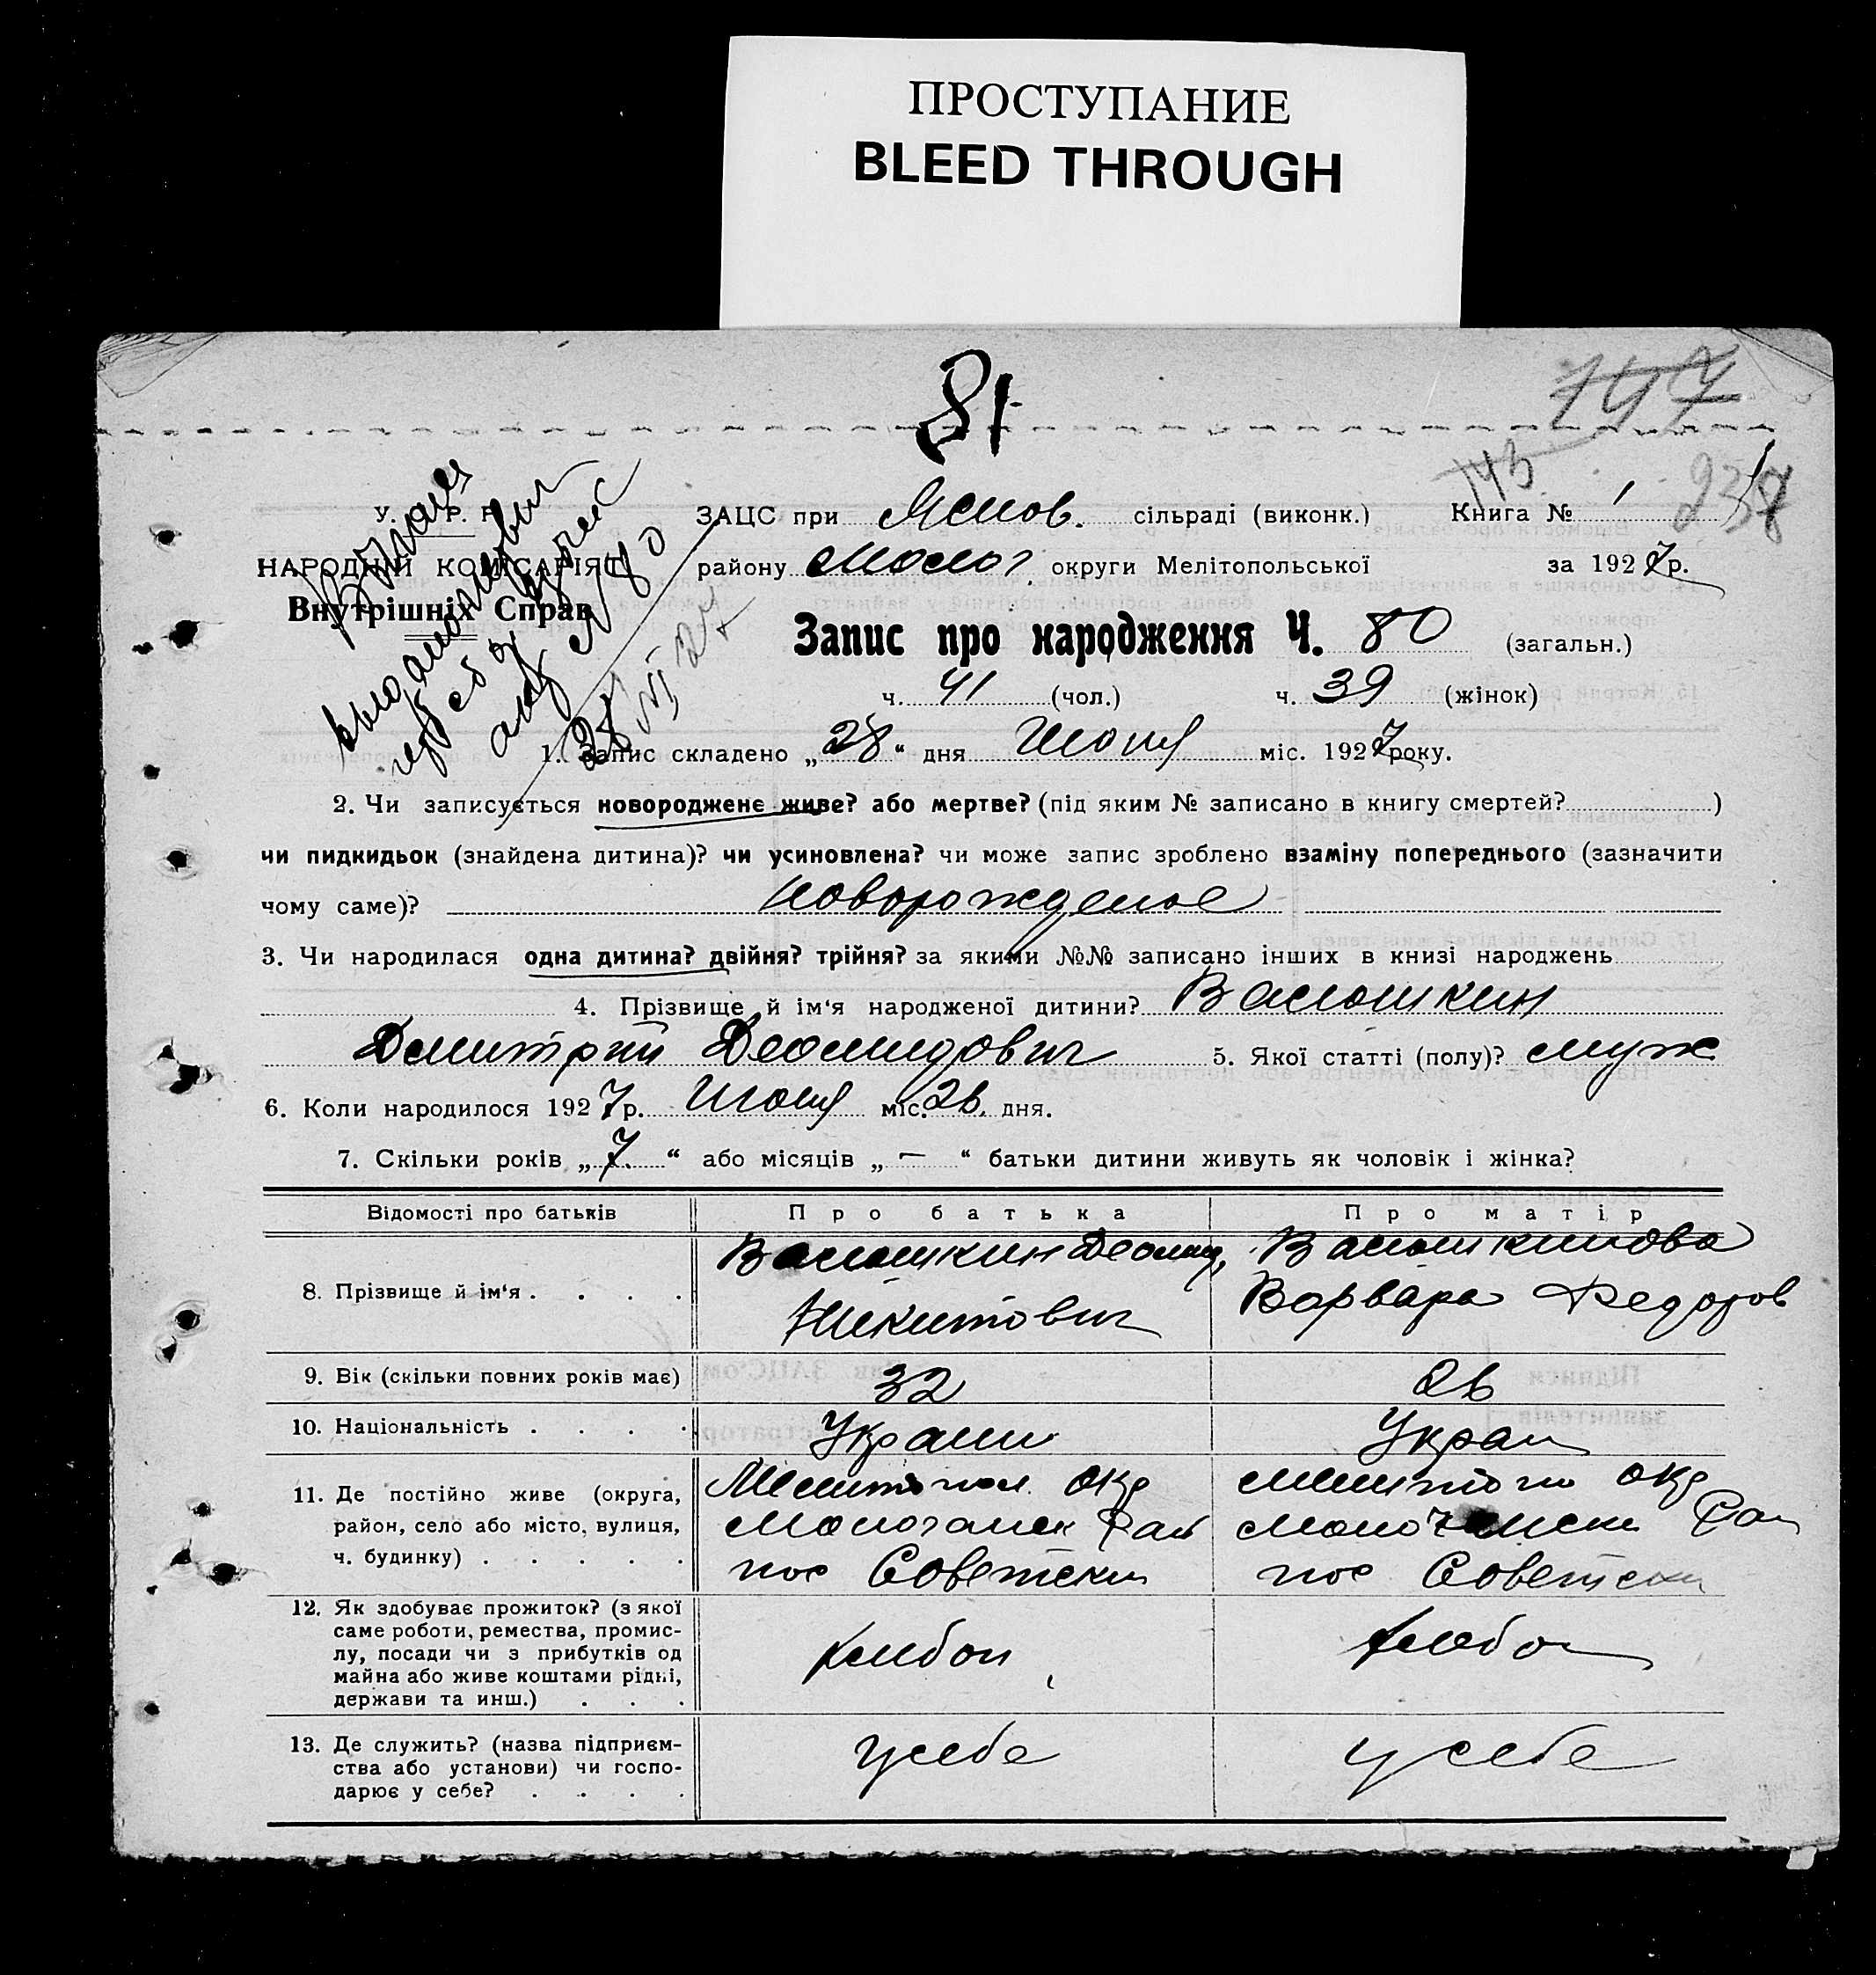 ПРОСТУПАНИЕ
BLEED THROUGH
81
147
143
237
У. С. Р. Р.
НАРОДНІЙ КОМІСАРІЯТ
Внутрішніх Справ
акт №80
28/VI 27
ЗАЦС при Яснов. сільраді (виконк.) Книга № 1
району Молоч. округи Мелітопольської за 1927 р.
Запис про народження Ч. 80 (загальн.)
ч. 41 (чол.) ч. 39 (жінок)
1. Запис складено „28“ дня Июня міс. 1927 року.
2. Чи записується новороджене живе? або мертве? (під яким № записано в книгу смертей? )
чи пидкидьок (знайдена дитина)? чи усиновлена? чи може запис зроблено взаміну попереднього (зазначити
чому саме)? новорожденое
3. Чи народилася одна дитина? двійня? трійня? за якими №№ записано інших в книзі народжень
4. Прізвище й ім‘я народженої дитини? Валюшкин
Дмитрий Деомидович 5. Якої статті (полу)? муж
6. Коли народилося 1927 р. Июня міс. 26. дня.
7. Скільки років „7.“ або місяців „—“ батьки дитини живуть як чоловік і жінка?
Відомості про батьків Про батька Про матір
8. Прізвище й ім‘я . . . . Валюшкин Деомид. Валюшкинова
Никитович Варвара Федоров
9. Вік (скільки повних років має) 32 26
10. Національність . . . . Украин Украи
11. Де постійно живе (округа, Мелитопол. окр Мелитопо окр
район, село або місто, вулиця, Молочанск Рай Молочанск Рай
ч. будинку) . . . . . пос Советски пос Советски
12. Як здобуває прожиток? (з якої
саме роботи, ремества, промис-
лу, посади чи з прибутків од хлебоп хлебо
майна або живе коштами рідні,
держави та инш.) . . .
13. Де служить? (назва підприєм-
ства або установи) чи госпо- у себе у себе
дарює у себе? . . . .